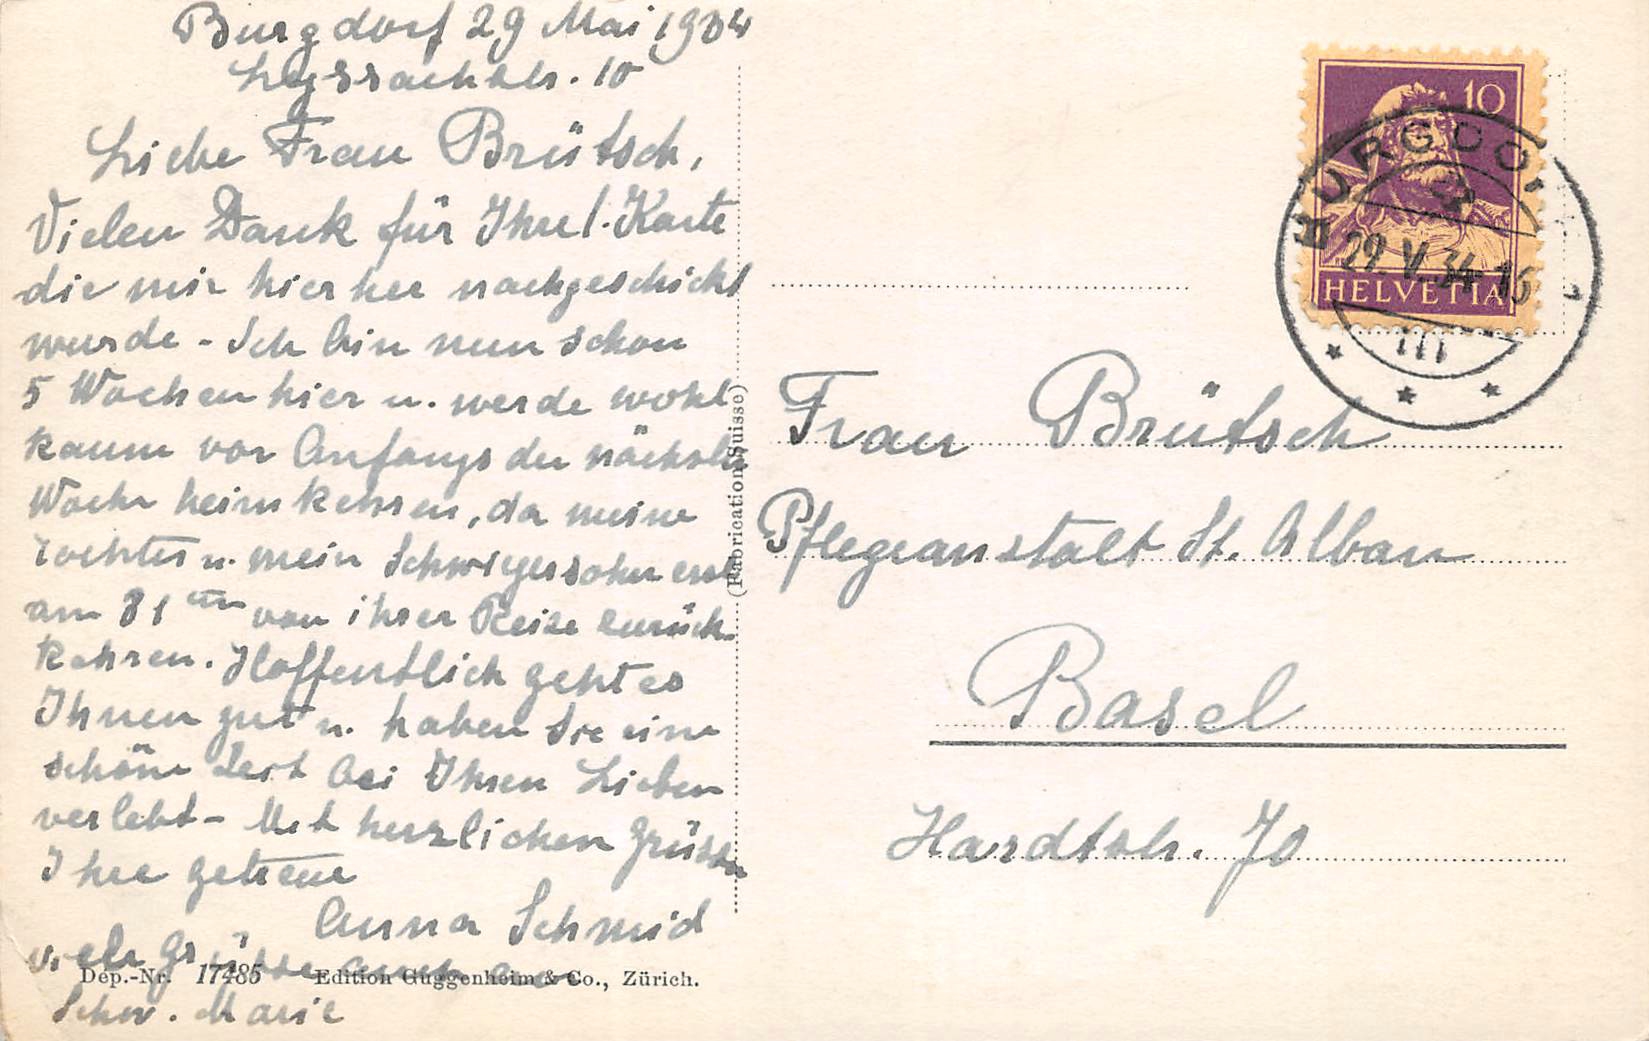 Burgdorf 29 Mai 1934
Lyssachstr. 10
Liebe Frau Brütsch,
Vielen Dank für Ihre l. Karte
die mir hierher nachgeschickt
wurde - Ich bin nun schon
5 Wochen hier u. werde wohl
kaum vor Anfangs der nächsten
Woche heimkehren, da meine
Tochter u. mein Schwigersohn erst
am 31ten von ihrer Reise zurück
kehren. Hoffentlich geht es
Ihnen gut u. haben Sie eine
schöne Zeit bei Ihren Lieben
verlebt - Mit herzlichen Grüssen
Ihre getreue
Anna Schmid
viele Grüsse auch an
Schw. Marie
Dép.-Nr. 17485 Edition Guggenheim & Co., Zürich.
(Fabrication Suisse)
10
HELVETIA
BURGDORF
29. V. 34
Frau Brütsch
Pflegeanstalt St. Alban
Basel
Hardtstr. 70